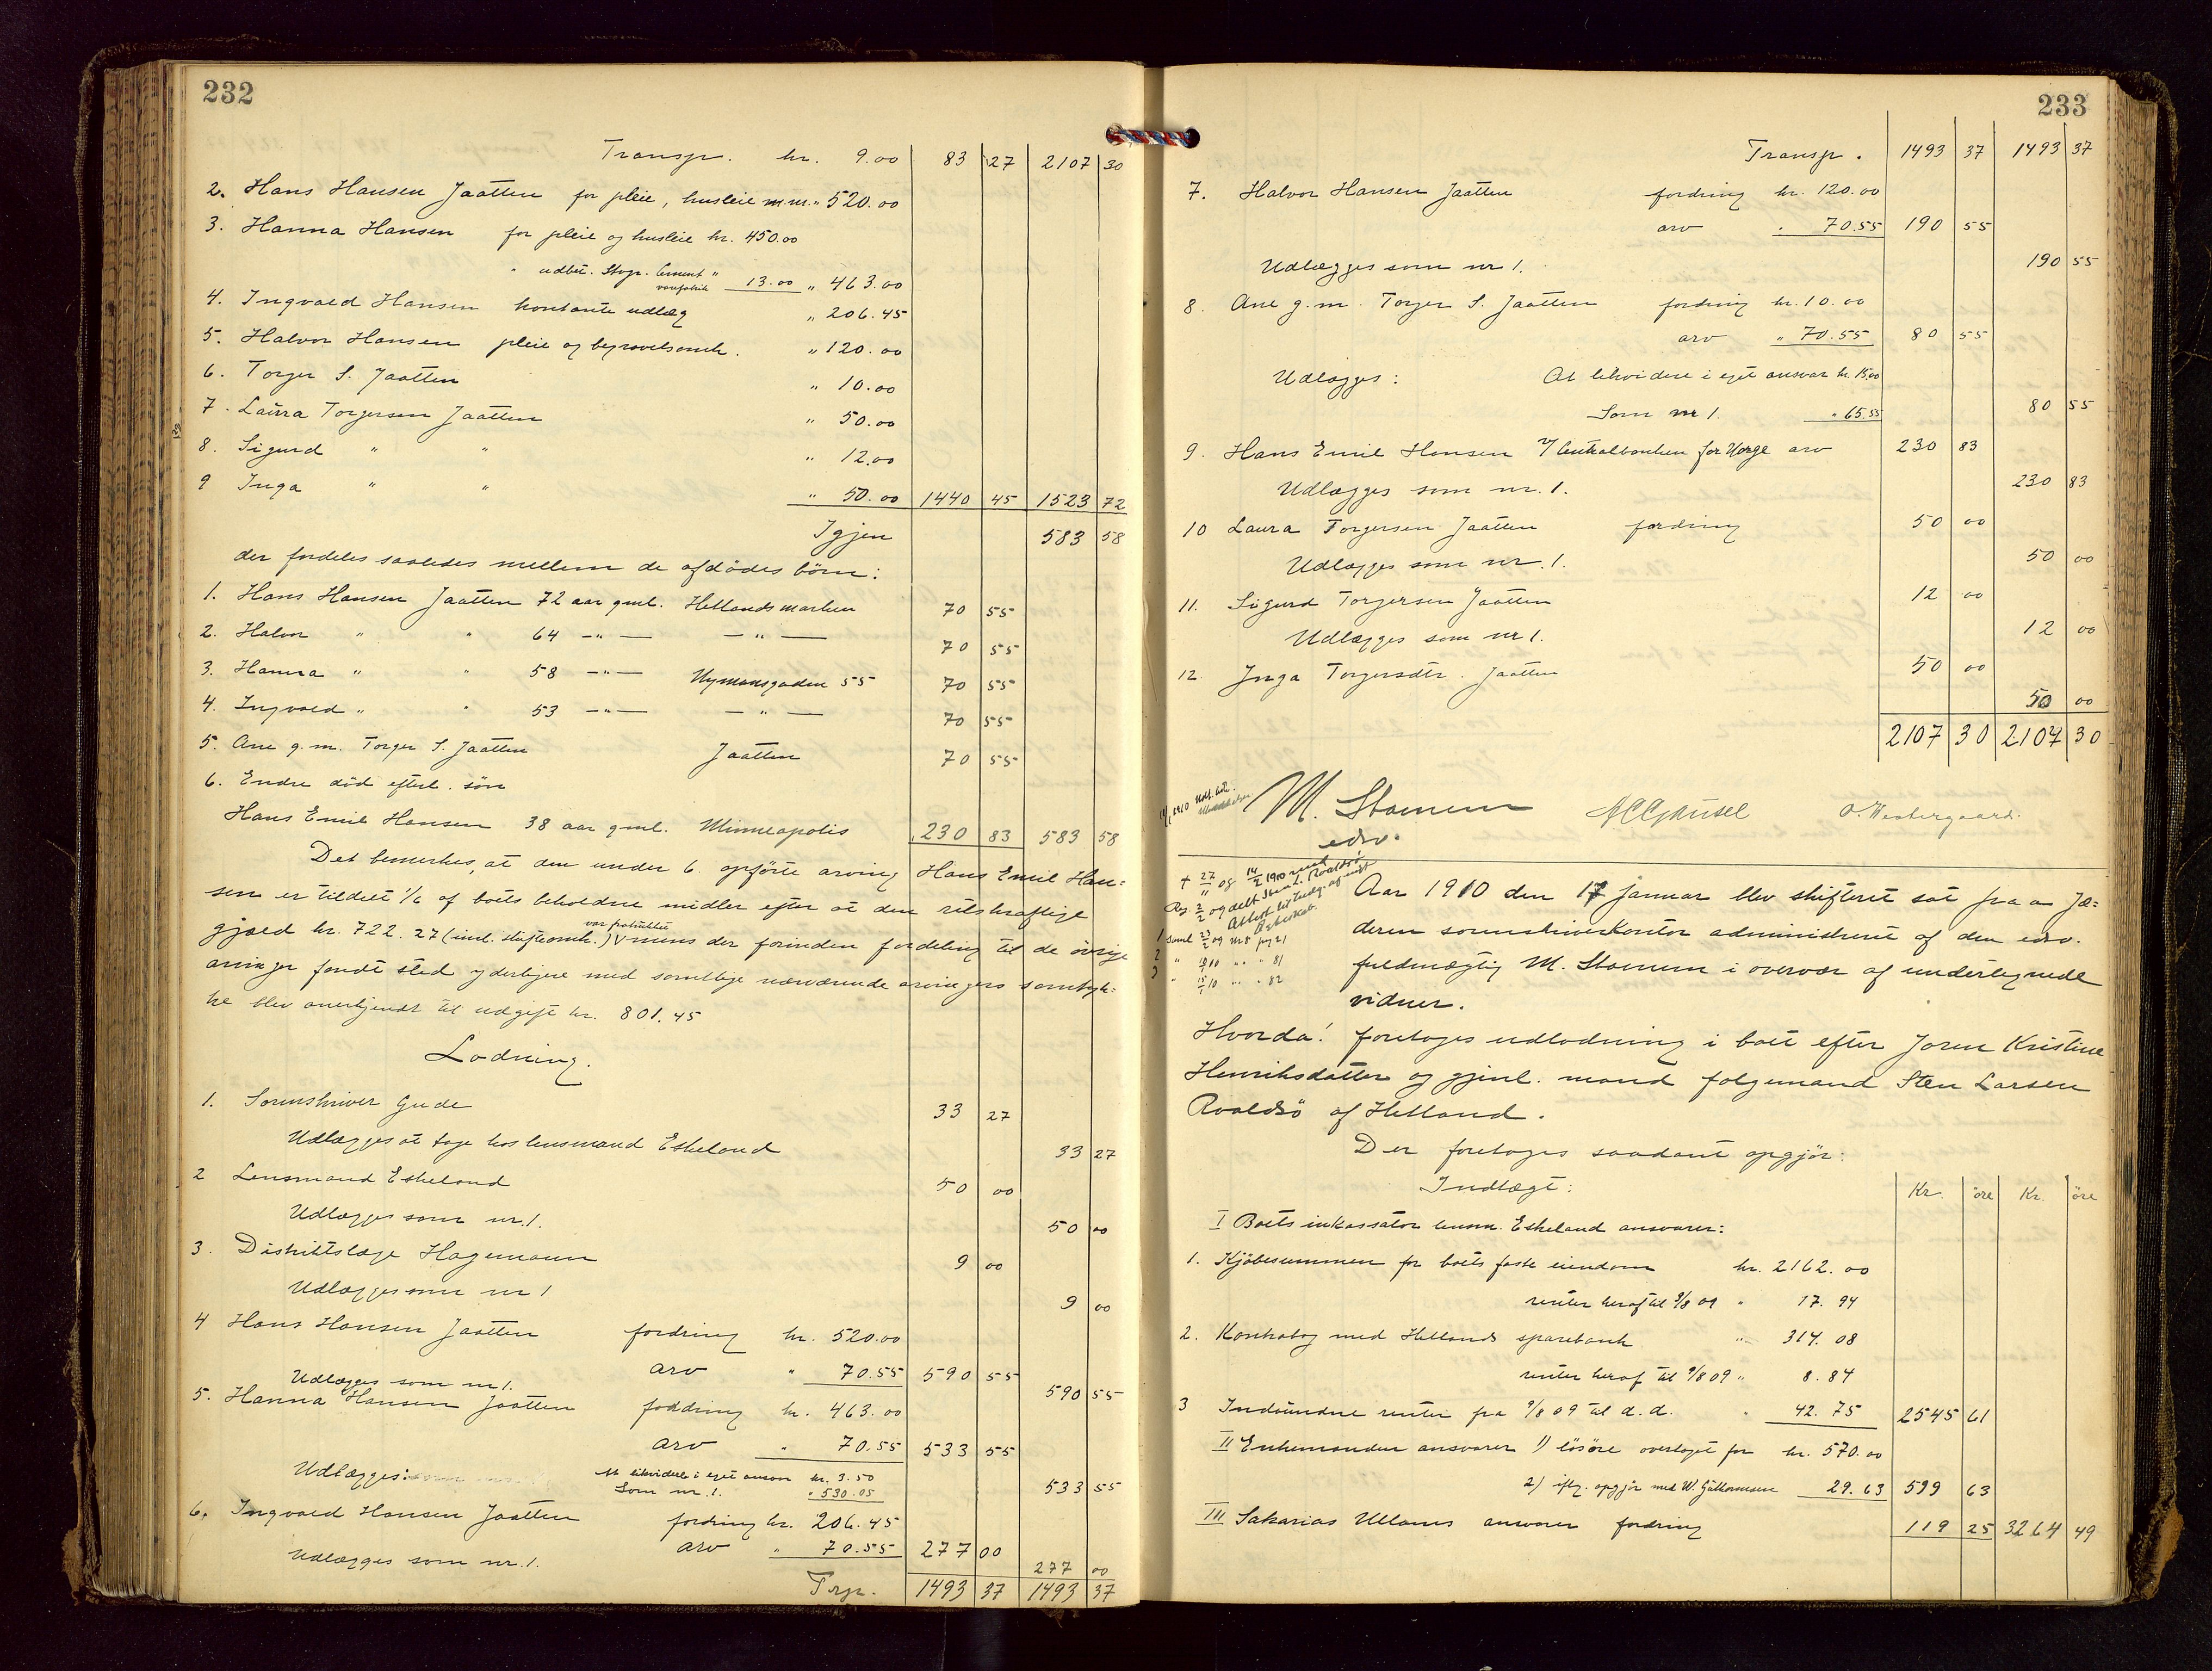 232
Transp. kr. 9.00 83 27 2107 30
2. Hans Hansen Jaatten for pleie, husleie m.m. " 520.00
3. Hanna Hansen for pleie og husleie kr. 450.00
" udbet. Stvgr. Cement "
varefabrik 13.00 " 463.00
4. Ingvald Hansen kontante udlæg " 206.45
5. Halvor Hansen pleie og begravelsomk. " 120.00
6. Torger S. Jaatten " 10.00
7. Laura Torgersen Jaatten " 50.00
8. Sigurd " " " 12.00
9 Inga " " " 50.00 1440 45 1523 72
Igjen 583 58
der fordeles saaledes mellem de afdödes börn:
1. Hans Hansen Jaatten 72 aar gml. Hetlandsmarken 70 55
2. Halvor " " 64 -"- -"- 70 55
3. Hanna " " 58 -"- Nymansgaden 55 70 55
4. Ingvald " " 53 -"- -"- 70 55
5. Ane g.m. Torger S. Jaatten Jaatten 70 55
6. Endre död efterl. sön
Hans Emil Hansen 38 aar gml. Minneapolis 230 83 583 58
Det bemerkes, at den under 6. opförte arving Hans Emil Han=
sen er tildelt 1/6 af boets beholdne midler efter at den retskraftige
var fratrukket
gjæld kr. 722.27 (incl. skifteomk.) V mens der forinden fordeling til de övrige
arvinger fandt sted yderligere med samtlige nærværende arvingers samtyk=
ke blev anerkjendt til udgift kr. 801.45
Lodning.
1. Sorenskriver Gude 33 27
Udlægges at tage hos lensmand Eskeland 33 27
2 Lensmand Eskeland 50 00
Udlægges som nr. 1. 50 00
3. Distriktslæge Hagemann 9 00
Udlægges som nr 1 9 00
4 Hans Hansen Jaatten fordring kr. 520.00
arv " 70.55 590 55
Udlægges som nr 1. 590 55
5. Hanna Hansen Jaatten fordring kr. 463.00
arv " 70.55 533 55
Udlægges: At likvidere i eget ansvar kr. 3.50
Som nr. 1. " 530.05 533 55
6. Ingvald Hansen Jaatten fordring kr. 206.45
arv " 70.55 277 00
Udlægges som nr. 1. 277 00
Trp. 1493 37 1493 37
233
Transp. 1493 37 1493 37
7. Halvor Hansen Jaatten fordring kr. 120.00
arv " 70.55 190 55
Udlægges som nr 1. 190 55
8. Ane g.m. Torger S. Jaatten fordring kr. 10.00
arv " 70.55 80 55
Udlægges: At likvidere i eget ansvar kr. 15.00
Som nr 1. " 65.55 80 55
9. Hans Emil Hansen v/ Centralbanken for Norge arv 230 83
Udlægges som nr. 1. 230 83
10 Laura Torgersen Jaatten fordring 50 00
Udlægges som nr. 1. 50 00
11. Sigurd Torgersen Jaatten 12 00
Udlægges som nr 1. 12 00
12. Inga Torgersdtr. Jaatten 50 00
50 00
2107 30 2107 30
M. Stamnem A C Gausel O. Westergaard.
edsv.
Aar 1910 den 17 januar blev skifteret sat paa Jæ=
deren sorenskriverkontor administreret af den edsv.
fuldmægtig M. Stamnem i overvær af undertegnede
vidner.
Hvorda! foretoges udlodning i boet efter Joren Kristine
Henriksdatter og gjenl. mand folgemand Sten Larsen
Roaldsö af Hetland.
Der foretoges saadant opgjör:
Indtægt: Kr. öre Kr. öre
I Boets inkassator lensm. Eskeland ansvarer:
1. Kjöbesummen for boets faste eiendom kr. 2162.00
renter heraf til 9/8 09 " 17.94
2. Kontrabog med Hetlands sparebank " 314.08
renter heraf til 9/8 09 " 8.84
3 Indvundne renter fra 9/8 09 til d.d. " 42.75 2545 61
II Enkemanden ansvarer 1) lösöre overtaget for kr. 570.00
2) iflg. opgjör med W. Guttormsen 29.63 599 63
III Sakarias Ullenes ansvarer fordring 119 25 3264 49